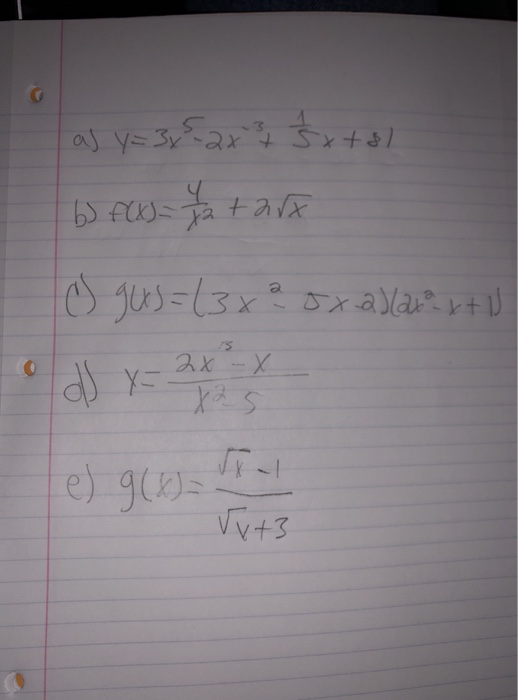 a) y = 3x⁵ - 2x⁻³ + 1/5 x + 81
b) f(x) = 4/x² + 2√x
c) g(x) = (3x² - 5x - 2)(2x² - x + 1)
d) y = (2x³ - x)/(x² - 5)
e) g(x) = (√x - 1)/(√x + 3)